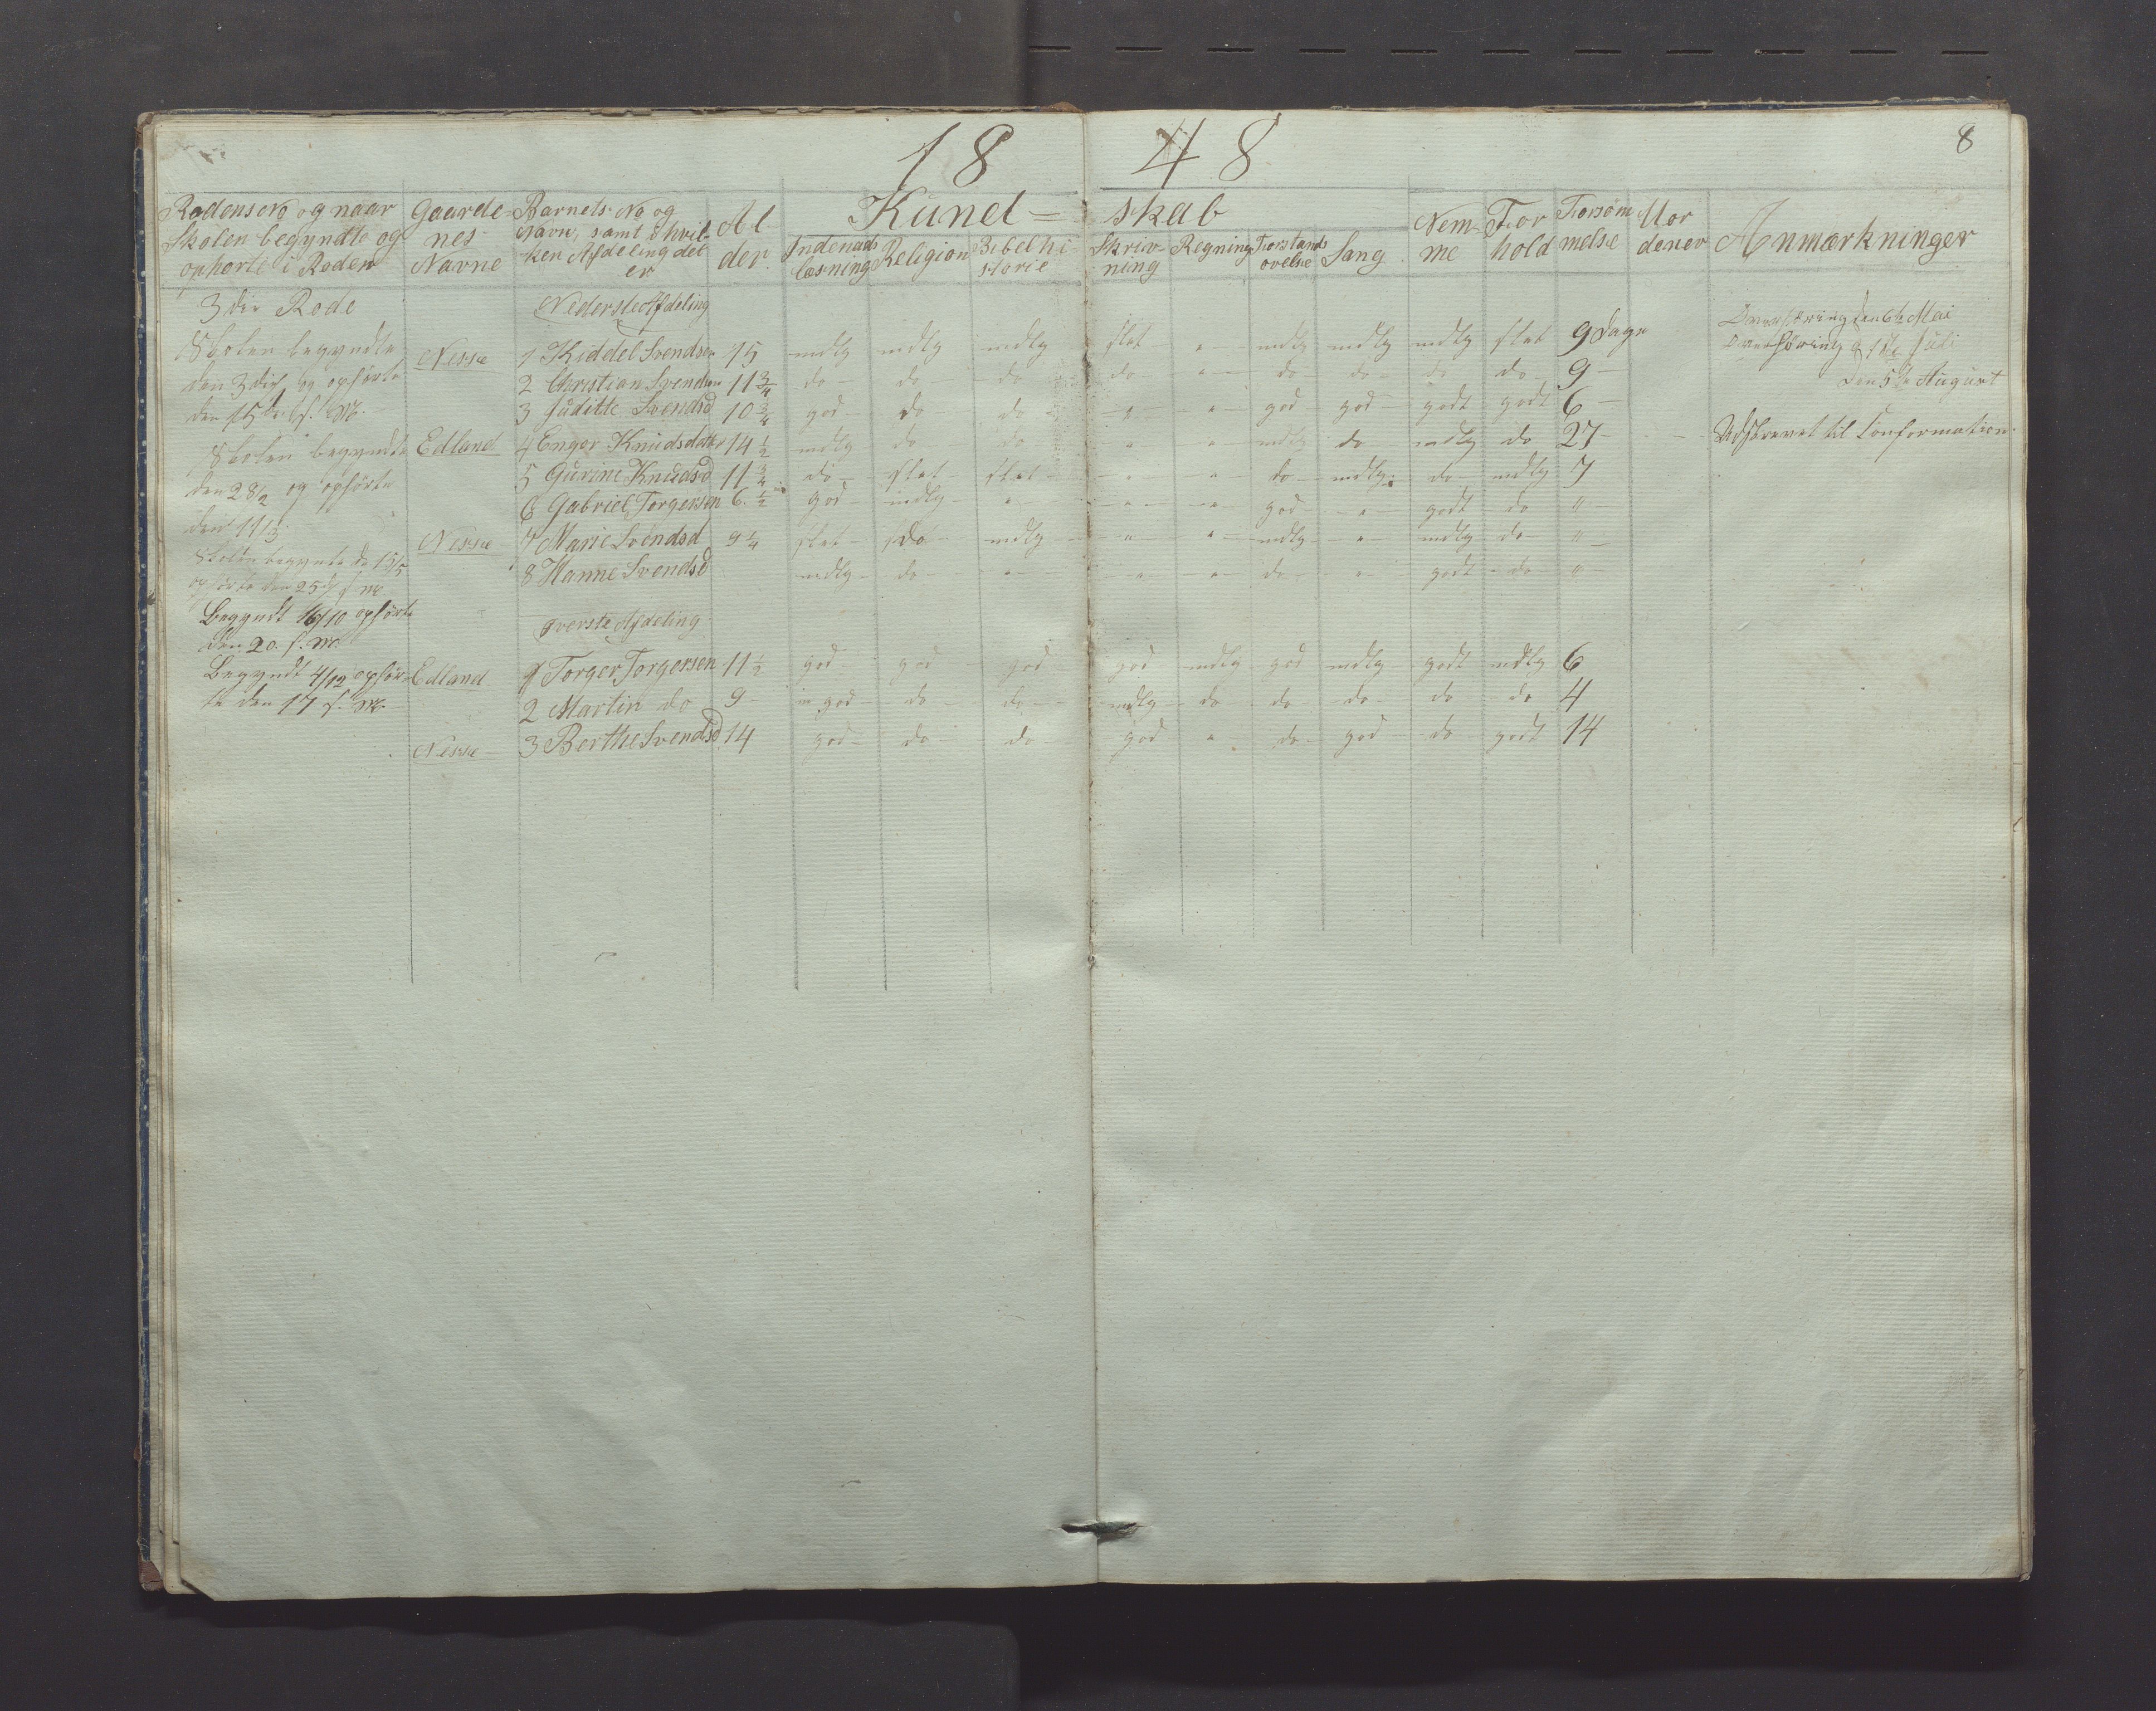 18 48
8
Rodens No og naar Skolen begyndte og ophørte i Roden
Gaardenes Navne
Barnets No og Navn, samt i hvilken Afdeling det er
Alder
Kund= skab
Indenadslæsning
Religion
Bibelhistorie
Skrivning
Regning
Forstandsøvelse
Sang
Nemme
Forhold
Forsømmelse
Anmærkninger
3die Rode
Nederste Afdeling
Skolen begyndte
den 3die og ophørte
den 15de s. M.
Skolen begyndte
den 28/2 og ophørte
den 11/3
Skolen begyndte de 15/5
ophørte den 25de s. M.
Begyndt 16/10 ophørte
den 20. s. M.
Begyndt 4/12 ophør-
te den 17 s. M.
Nesse 1 Kiddel Svendsen 15 mdlg mdlg mdlg slet " mdlg mdlg mdlg slet 9 Dage
2 Christian Svendsen 11 3/4 do do do do " do do do do 9
3 Juditte Svendsd 10 3/4 god do do " " god god godt godt 6
Edland 4 Enger Knudsdatter 14 1/2 mdlg do do " " mdlg do mdlg do 27 Udskrevet til Confirmation.
5 Gurine Knudsd 11 3/4 do slet slet " " do mdlg do mdlg 7
6 Gabriel Torgersen 6 1/2 god mdlg " " " god " godt do "
Nesse 7 Marie Svendsd 9 1/4 slet do mdlg " " mdlg " mdlg do "
8 Hanne Svendsd mdlg do " " " do " godt do "
Øverste Afdeling
Edland 1 Torger Torgersen 11 1/2 god god god god mdlg god mdlg godt mdlg 6
2 Martin do 9 god do do mdlg do do do do do 4
Nesse 3 Berthe Svendsd 14 god do do god " do god do godt 14
Overhøring den 6te Mai
Overhøring Juli
den 5te August